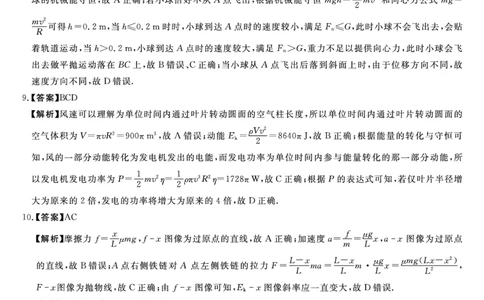 球的机械能守恒,故 A 正确;若小球恰好不从 A 点飞出,根据机械能守恒 mgh=\frac{1}{2}mv^2 和向心力公式 mg=
\frac{mv^2}{R}可得 h=0.2 m,当 h≤0.2 m 时时,小球到达 A 点时的速度较小,满足 F_n≤G,此时小球不会飞出去,会贴
着轨道运动,当 h>0.2 m,小球到达 A 点时的速度较大,满足 F_n>G,重力不足以提供向心力,此时小球会飞
出去做平抛运动落在 BC 上,故 B 错误、C 正确;当小球从 A 点飞出后落到斜面上时,由于位移方向不同,故
速度方向不同,故 D 错误.
9.【答案】BCD
【解析】风速可以理解为单位时间内通过叶片转动圆面的空气柱长度,所以单位时间内通过叶片转动圆面的
空气体积为 V=πvR^2=900π m^3,故 A 错误;动能 E_k=\frac{ρVv^2}{2}=8640π J,故 B 正确;根据能量的转化与守恒可
知,风的一部分动能转化为发电机发出的电能,而发电功率为单位时间内参与能量转化的那一部分动能,所
以发电机发电功率为 P=\frac{1}{2}mv^2η=\frac{1}{2}ρπv^3R^2η=1728π W,故 C 正确;根据 P 的表达式可知,若仅叶片半径增
大为原来的 2 倍,发电的功率将增大为原来的 4 倍,故 D 正确.
10.【答案】AC
【解析】摩擦力 f=\frac{x}{L}μmg,f-x 图像为过原点的直线,故 A 正确;加速度 a=\frac{f}{m}=\frac{μg}{L}x,a-x 图像为过原点
的直线,故 B 错误;A 点右侧铁链对 A 点左侧铁链的拉力 F=\frac{L-x}{L}ma=\frac{L-x}{L}m·\frac{μg}{L}x=\frac{μmg(Lx-x^2)}{L^2},
F-x 图像为抛物线,故 C 正确;由 f-x 图像可知,E_k-x 图像斜率应一直变大,故 D 错误.